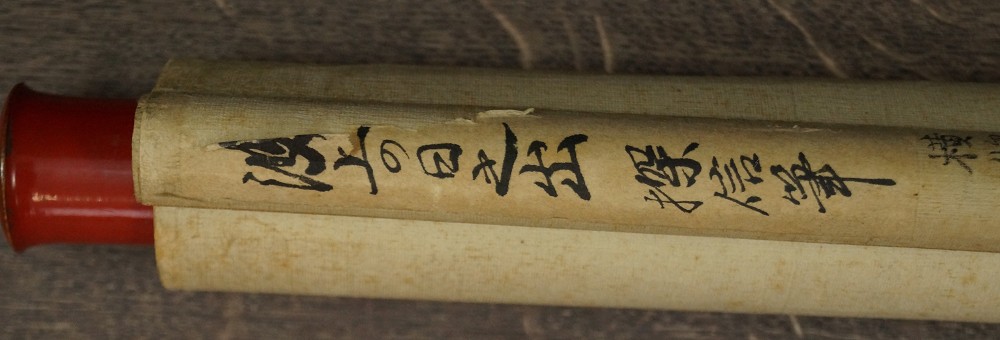 海上の日之出 探信筆